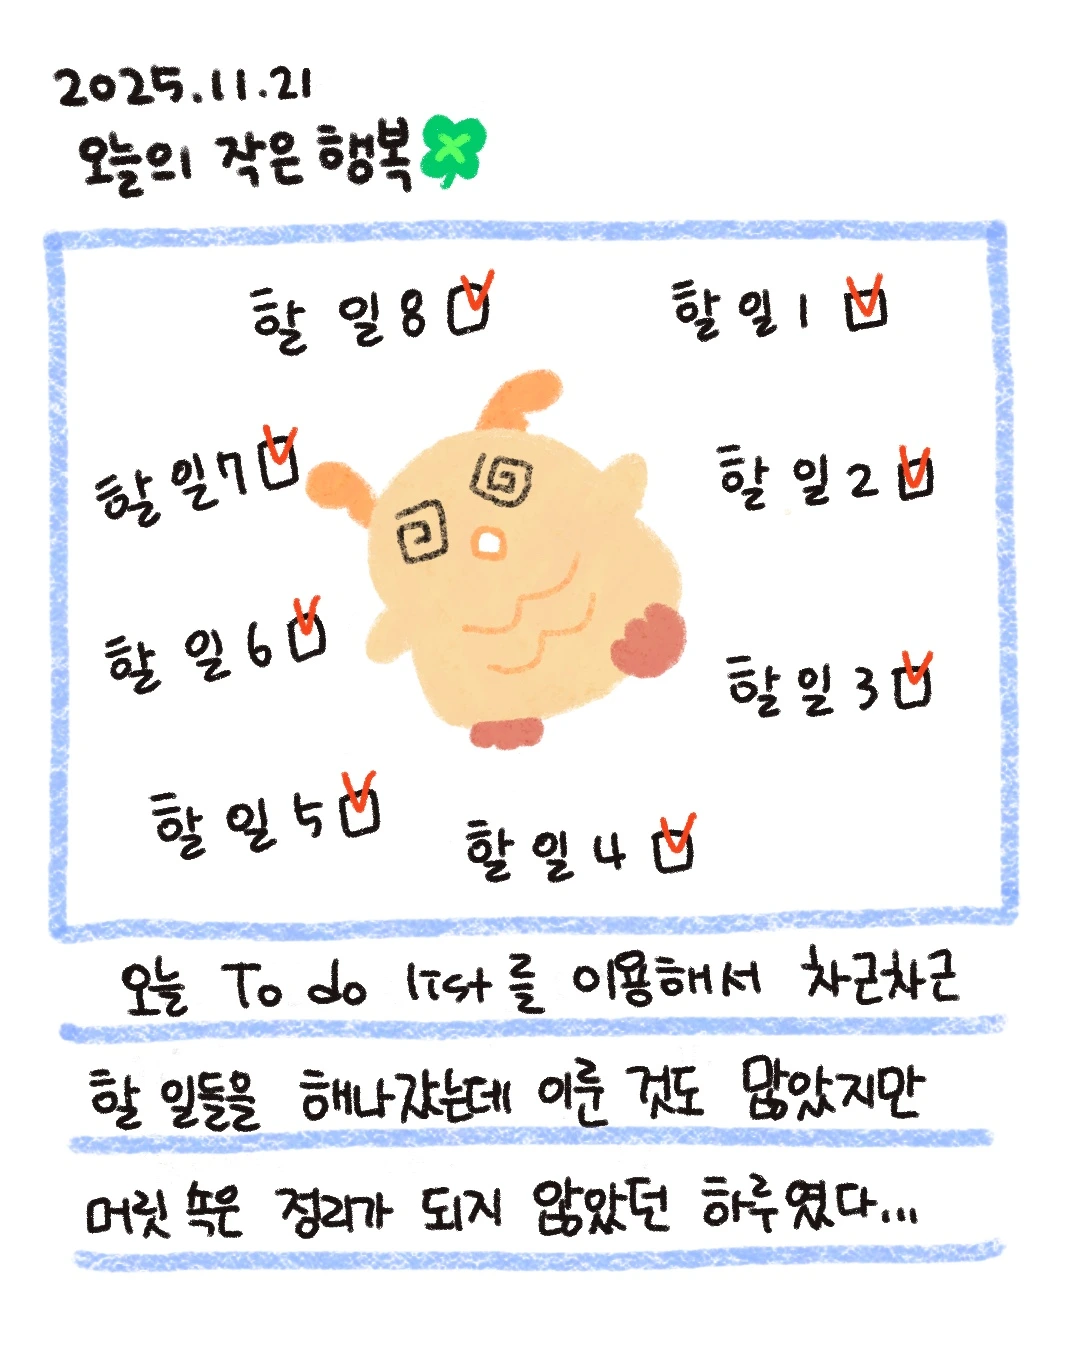 2025.11.21
오늘의 작은 행복
할 일 8
할 일 1
할 일 7
할 일 2
할 일 6
할 일 3
할 일 5
할 일 4
오늘 To do list를 이용해서 차근차근
할 일들을 해나갔는데 이룬 것도 많았지만
머릿속은 정리가 되지 않았던 하루였다...